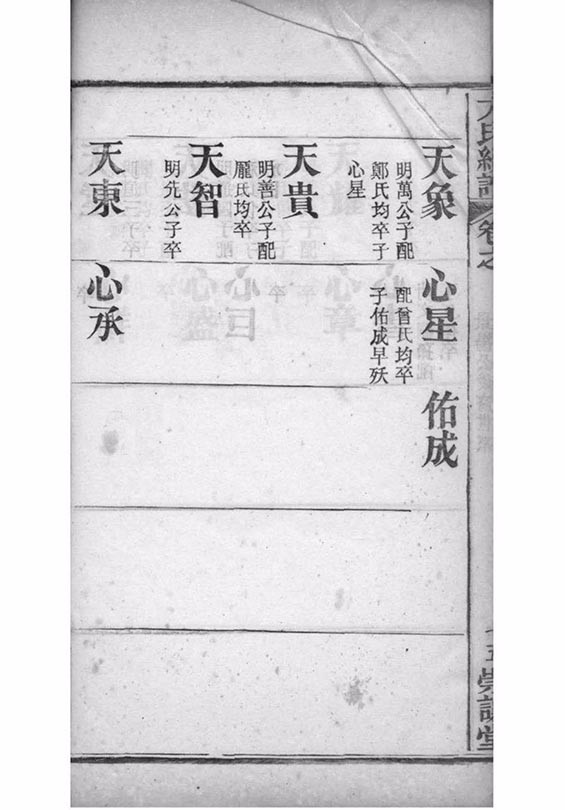 天象
明萬公子配
鄭氏均卒子
心星
心星
配曾氏均卒
子佑成早殀
佑成
天貴
明善公子配
龐氏均卒
天智
明先公子卒
天東
心承
氏總譜
卷之
崇
堂